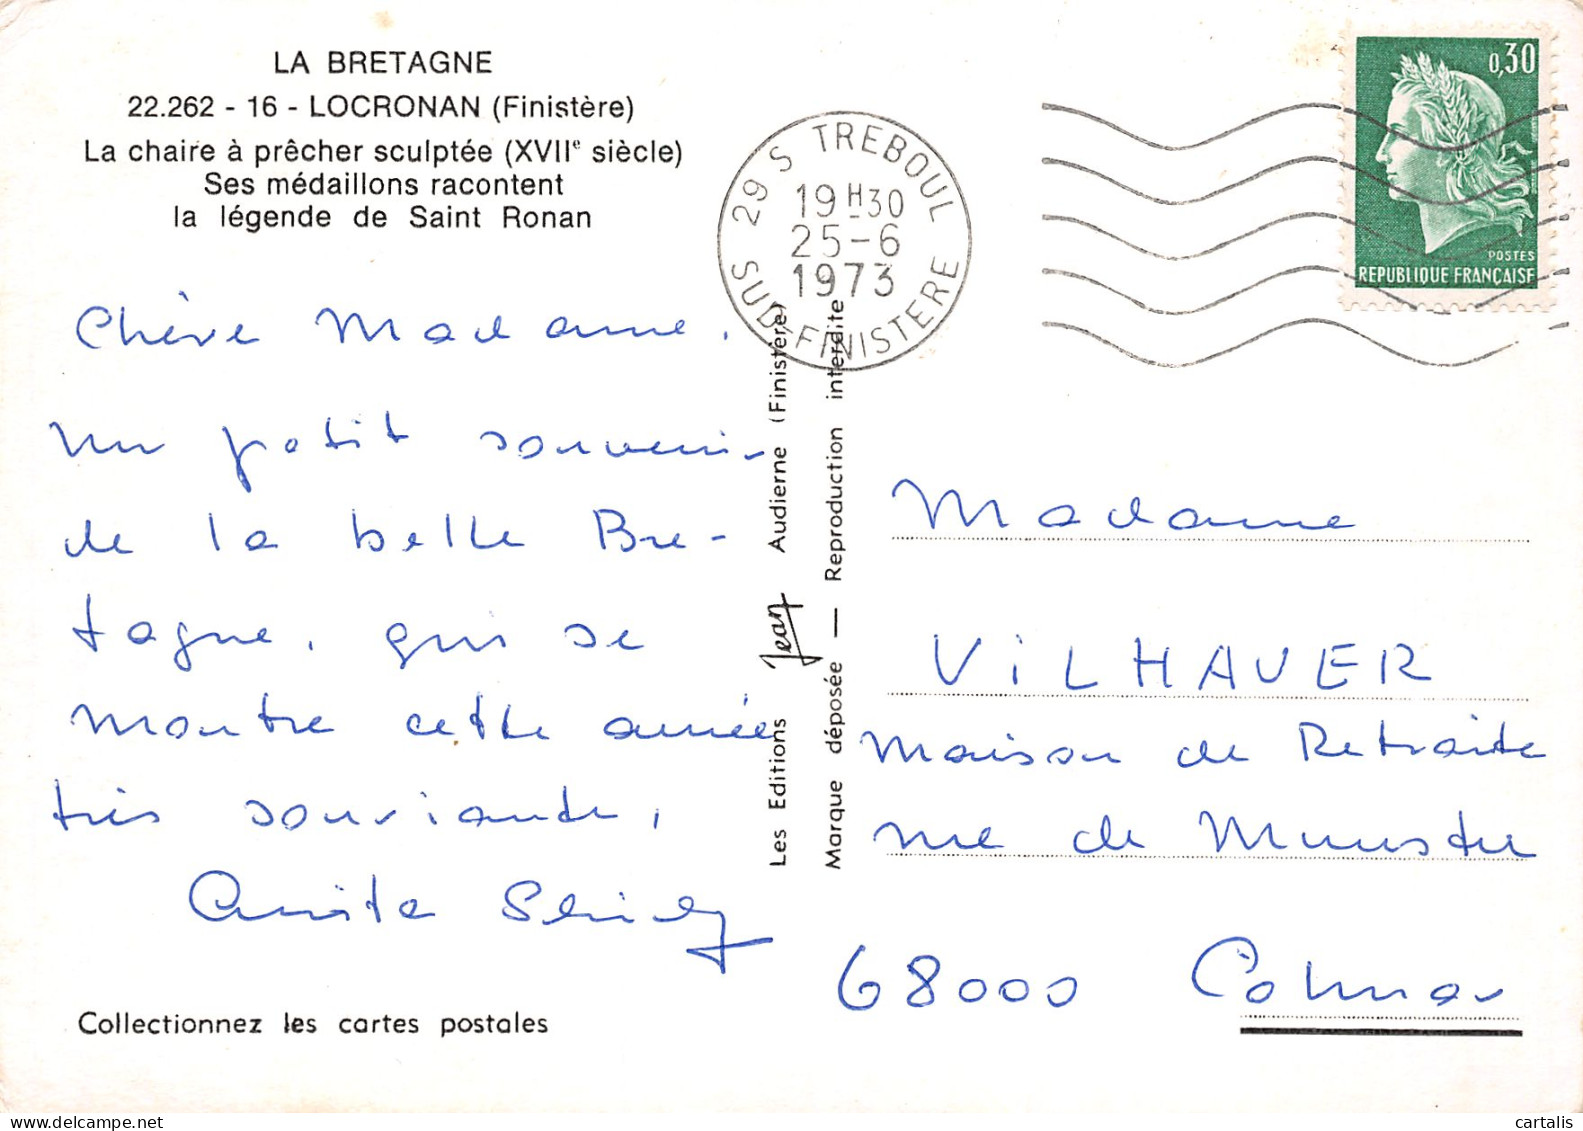 LA BRETAGNE
22.262 - 16 - LOCRONAN (Finistère)
La chaire à prêcher sculptée (XVIIe siècle)
Ses médaillons racontent
la légende de Saint Ronan
Chère Madame,
un petit souvenir
de la belle Bre-
tagne, qui se
montre cette année
très souriante,
Collectionnez les cartes postales
Les Editions Jean Audierne (Finistère)
Marque déposée — Reproduction interdite
29 S TREBOUL
19H30
25-6
1973
SUD-FINISTERE
0,30
POSTES
REPUBLIQUE FRANÇAISE
Madame
ViLHAUER
Maison de Retraite
rue de Munster
68000 Colmar
cartalis